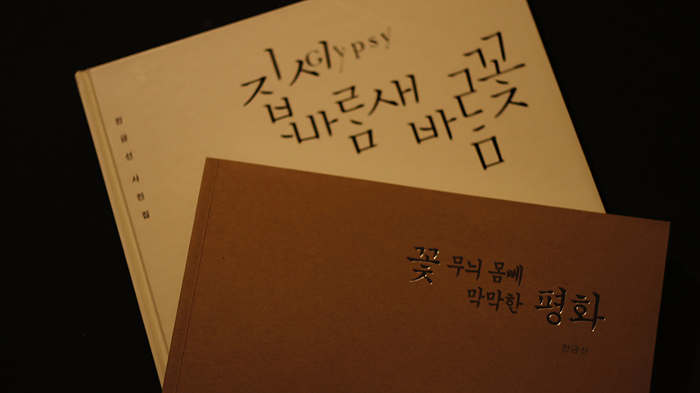 집시 Gypsy
바람새 바람꽃
한금선 사진집
꽃무늬 몸뻬
막막한 평화
한금선